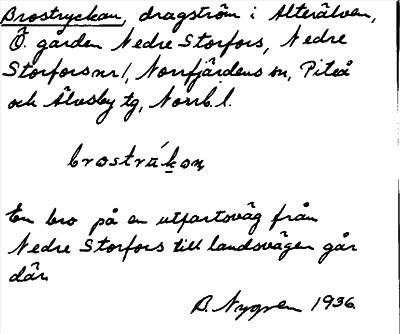 Brostryckan, dragström i Alterälven,
Ö. gården Nedre Storfors, Nedre
Storfors nr 1, Norrfjärdens sn, Piteå
och Älvsby tg, Norrb. l.
En bro på en utfartsväg från
Nedre Storfors till landsvägen går
där.
B. Nygren 1936.